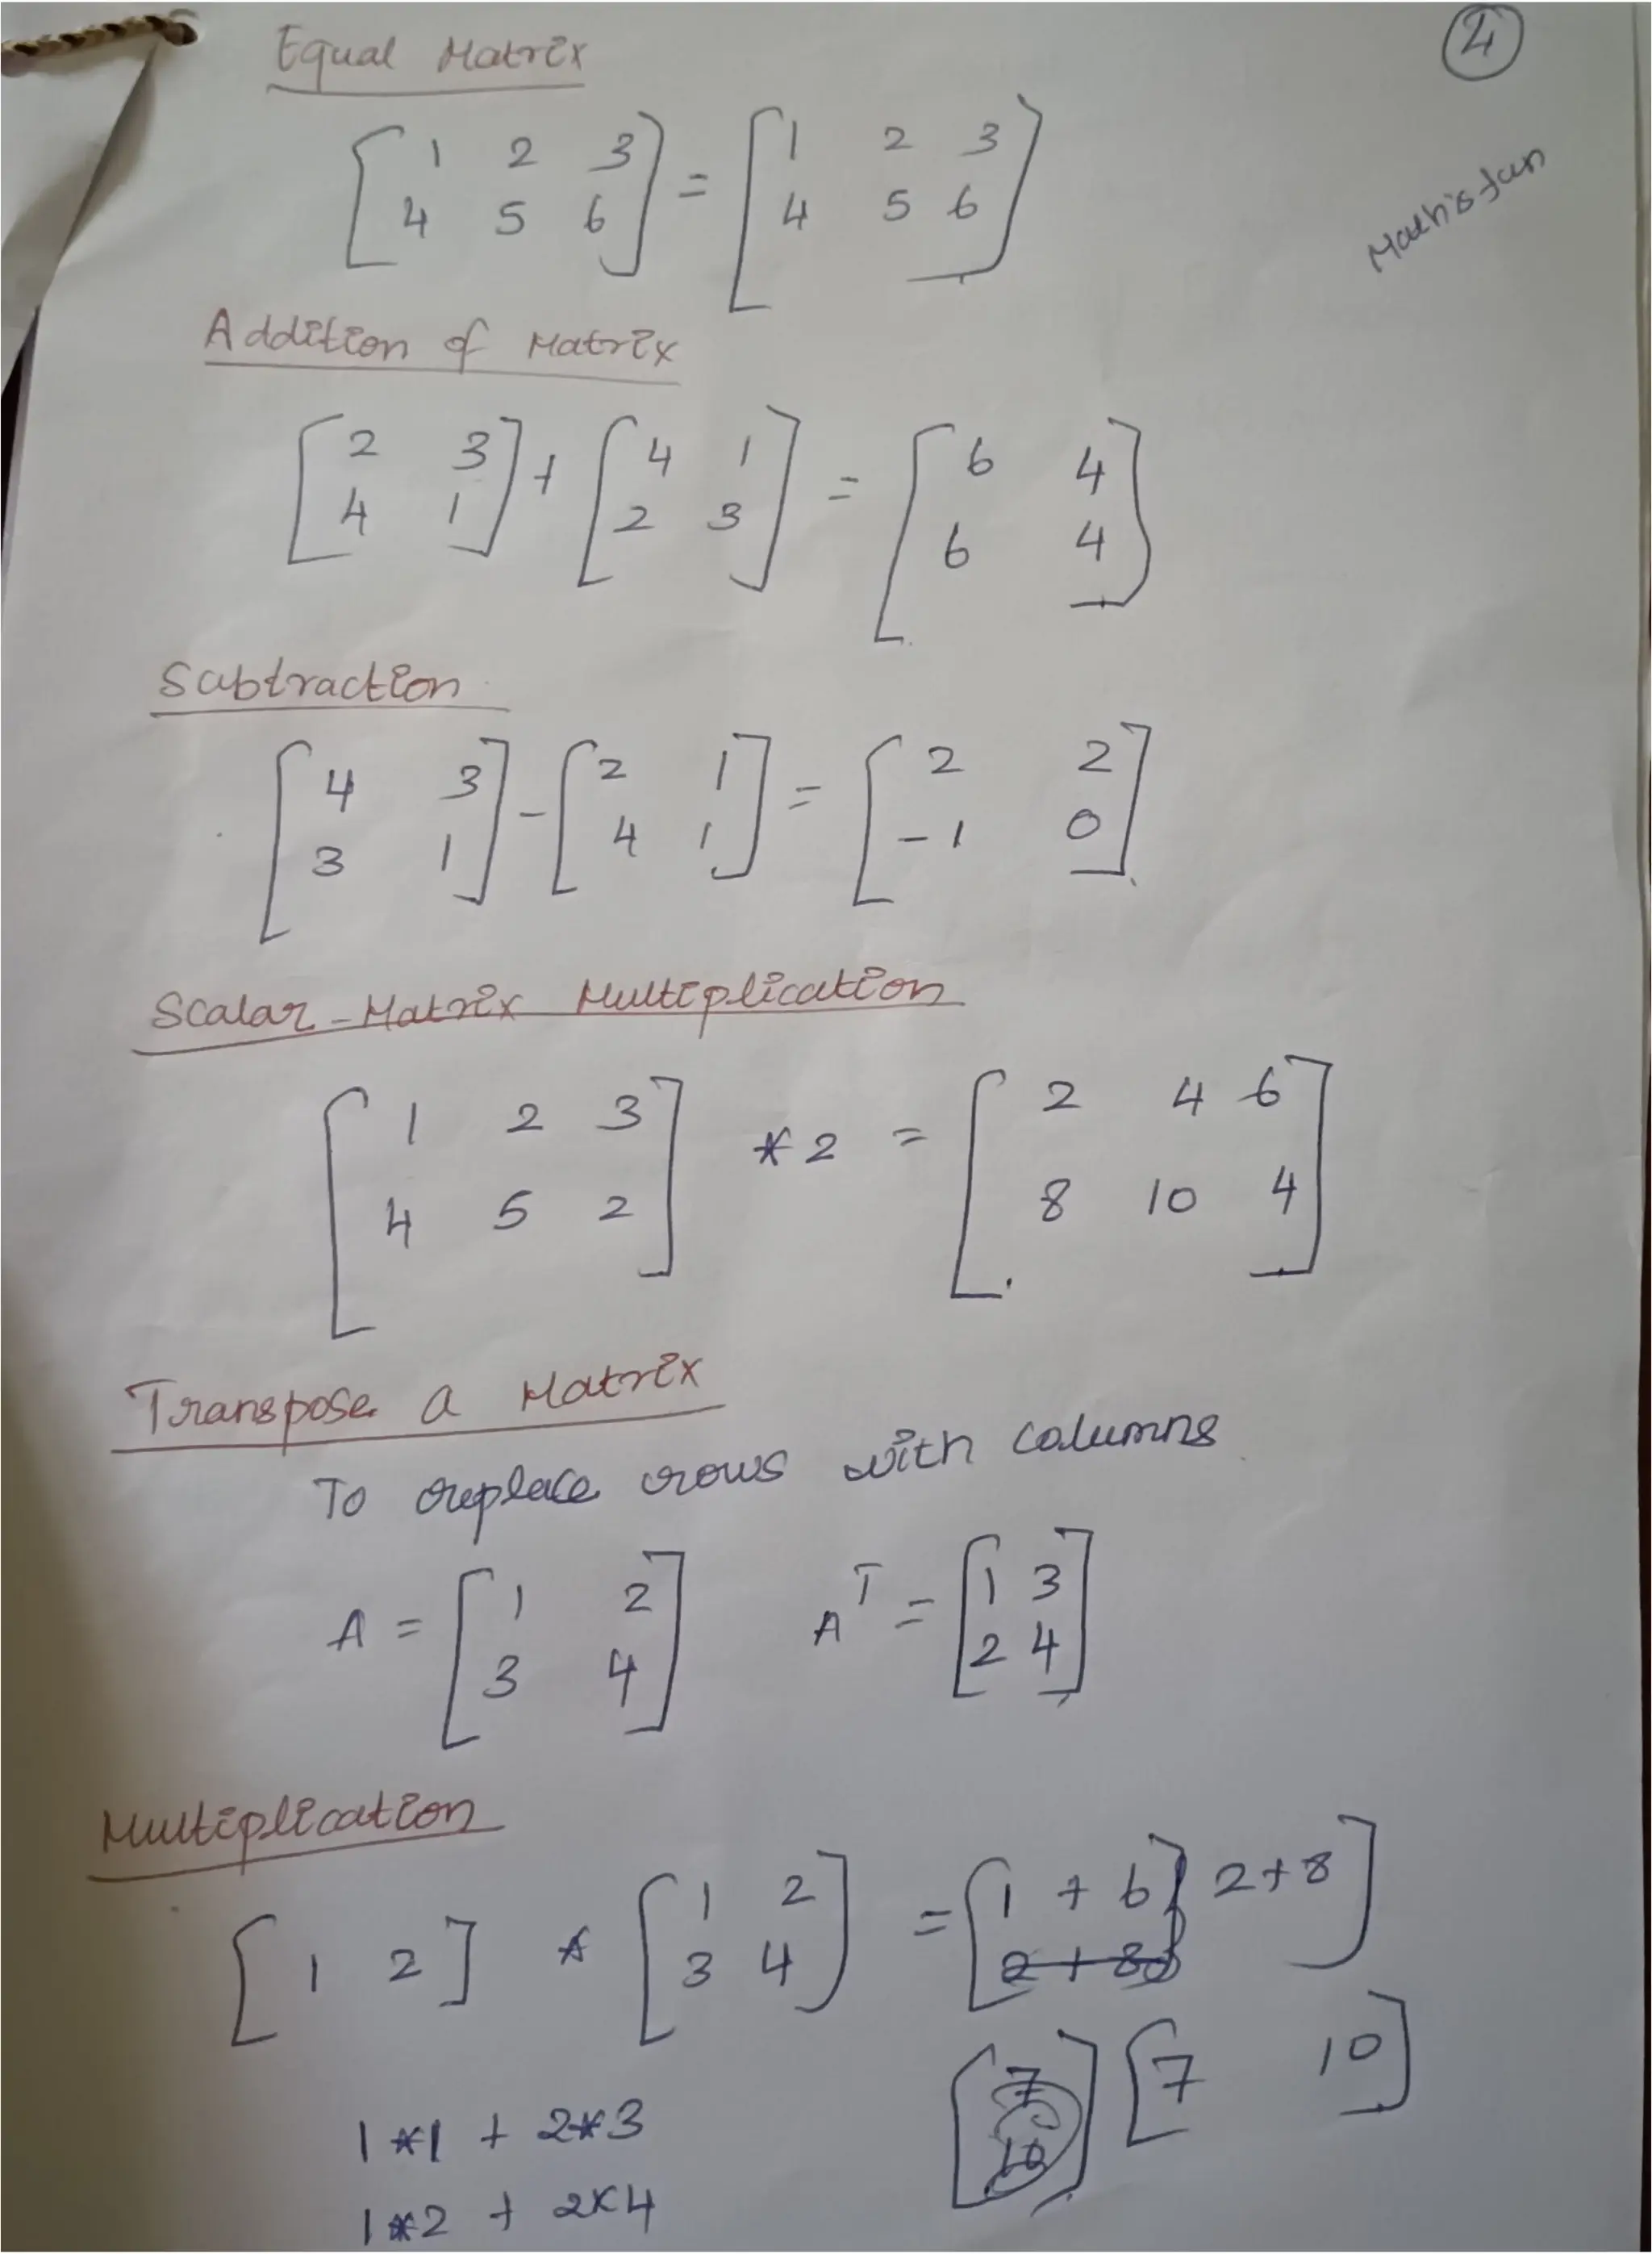 Equal Matrix
2
Mathisfun
[1 2 3
4 5 6] = [1 2 3
4 5 6]
Addition of Matrix
[2 3
4 1] + [4 1
2 3] = [6 4
6 4]
Subtraction
[4 3
3 1] - [2 1
4 1] = [2 2
-1 0]
Scalar-Matrix Multiplication
[1 2 3
4 5 2] * 2 = [2 4 6
8 10 4]
Transpose a Matrix
To replace rows with columns
A = [1 2
3 4] A^T = [1 3
2 4]
Multiplication
[1 2] * [1 2
3 4] = [1 + 6 2+8]
2 + 8
[7
10] [7 10]
1*1 + 2*3
1*2 + 2×4